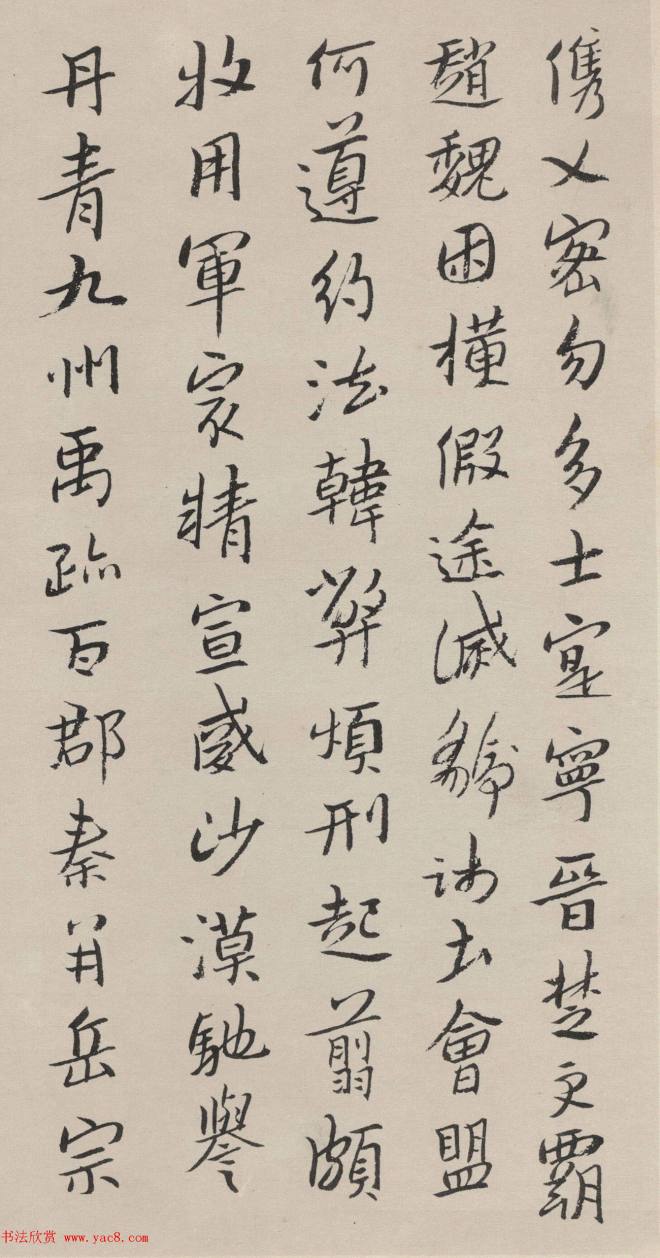 儁乂密勿多士寔寧晉楚更霸
趙魏困橫假途滅虢踐土會盟
何遵約法韓弊煩刑起翦頗
牧用軍冣精宣威沙漠馳譽
丹青九州禹跡百郡秦并岳宗
书法欣赏 www.yac8.com